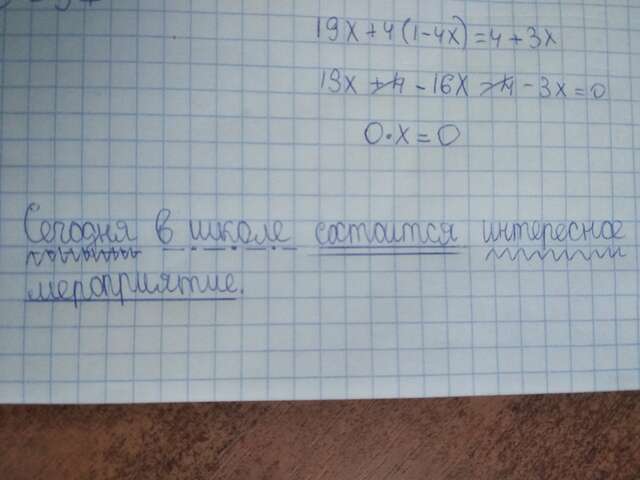 19x + 4(1 - 4x) = 4 + 3x
19x + 4 - 16x - 4 - 3x = 0
0 · x = 0
Сегодня в школе состоится интересное
мероприятие.